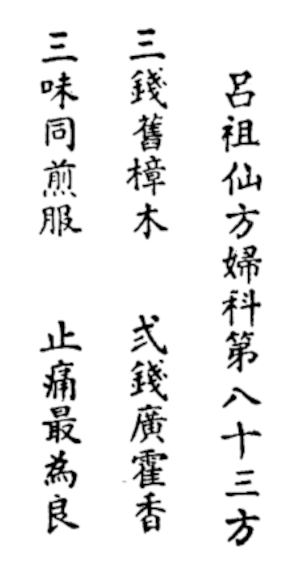 呂祖仙方婦科第八十三方
三錢舊樟木　弍錢廣霍香
三味同煎服　止痛最為良